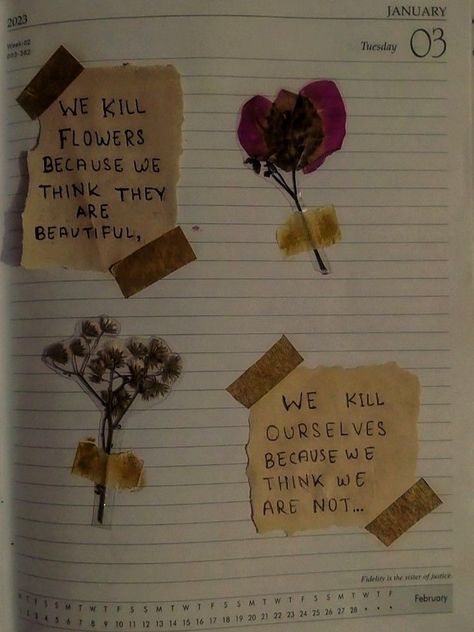 2023
JANUARY
Week-02
003-362
Tuesday 03
WE KILL
FLOWERS
BECAUSE WE
THINK THEY
ARE
BEAUTIFUL,
WE KILL
OURSELVES
BECAUSE WE
THINK WE
ARE NOT...
Fidelity is the sister of justice.
T F S S M T W T F S S M T W T F S S M T W T F S S M T W T F
4 5 6 7 8 9 10 11 12 13 14 15 16 17 18 19 20 21 22 23 24 25 26 27 28 • • •
February